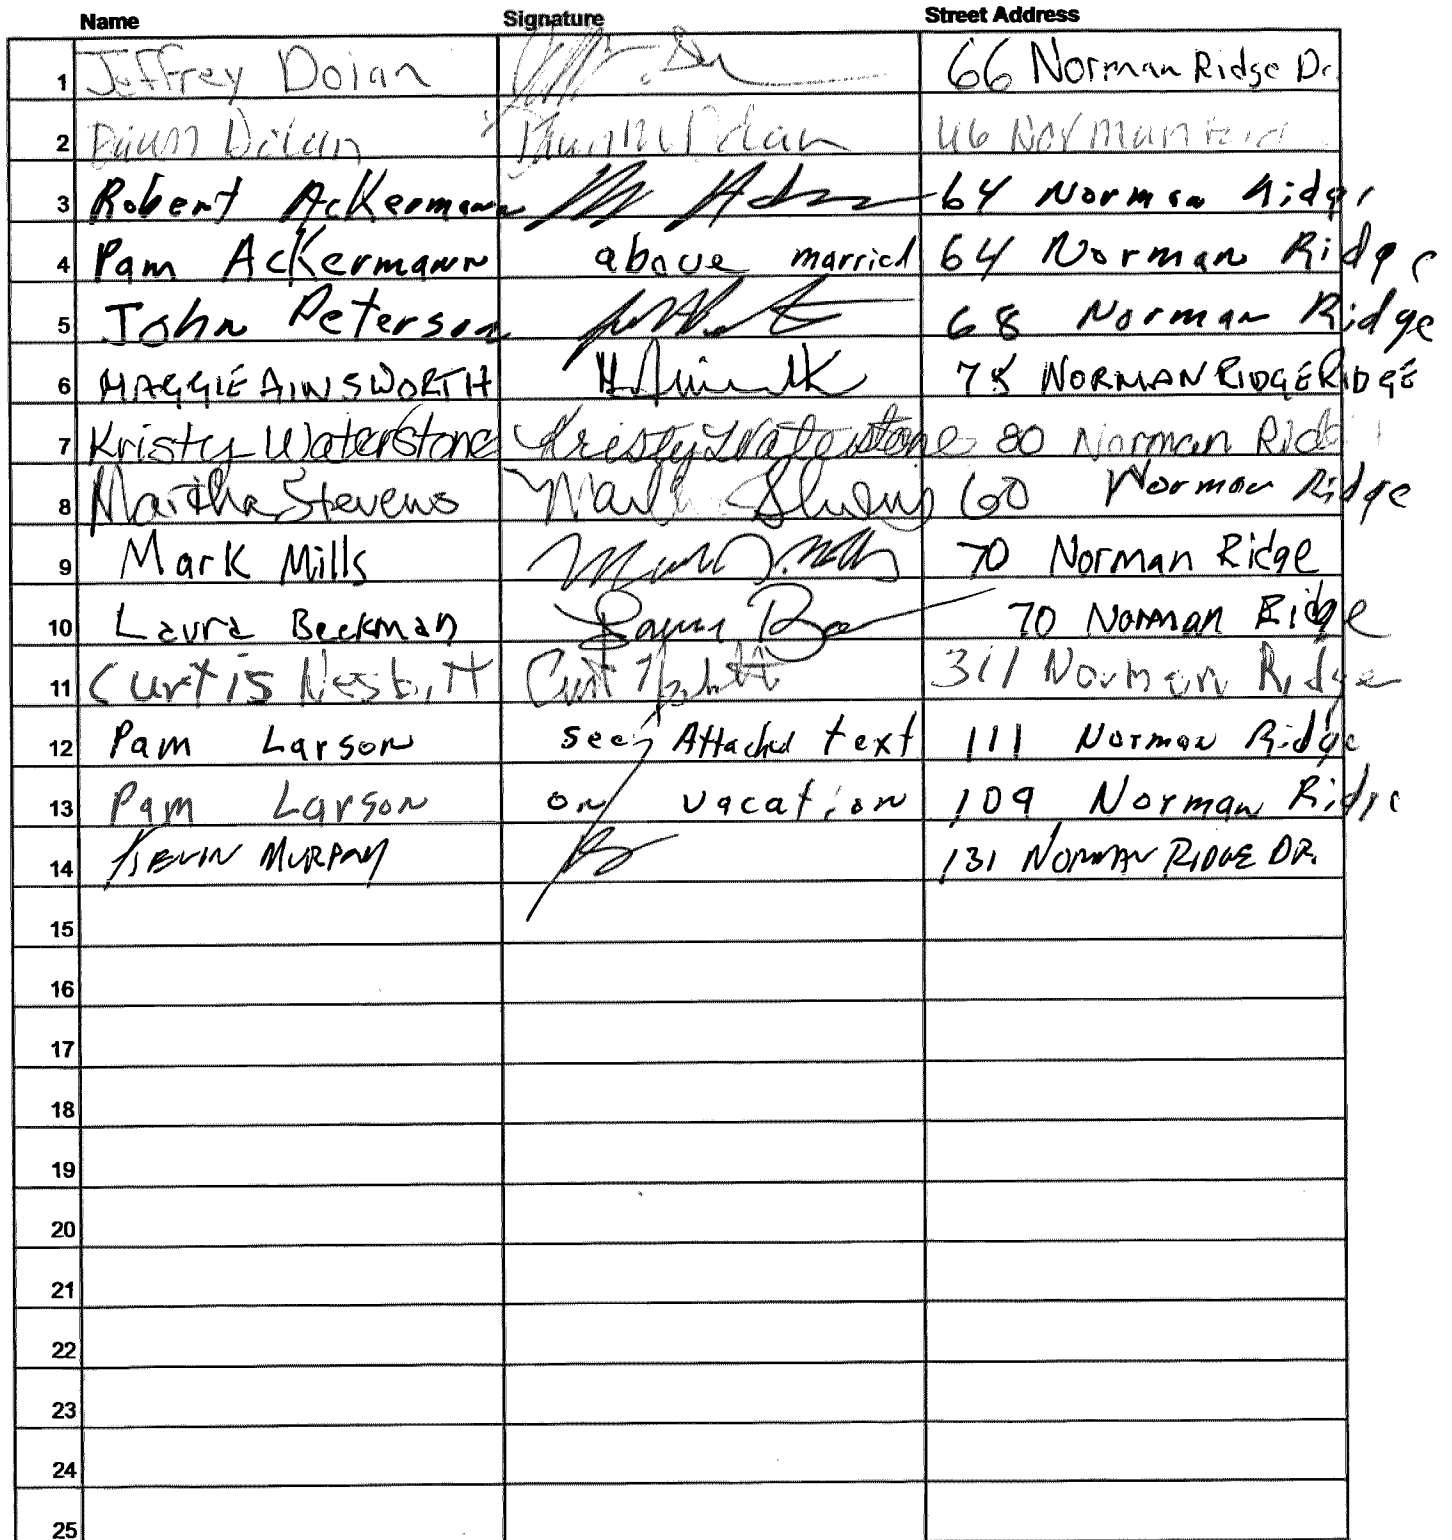 Name Signature Street Address
1 Jeffrey Dolan 66 Norman Ridge Dr
2 Dawn Dolan Dawn M Dolan 66 Norman
3 Robert Ackermann 64 Norman Ridge
4 Pam Ackermann above married 64 Norman Ridge
5 John Peterson 68 Norman Ridge
6 MAGGIE AINSWORTH NORMAN RIDGE RIDGE
7 Kristy Waterstone Kristy Waterstone 80 Norman Ridg
8 Martha Stevens Martha Stevens 60 Norman Ridge
9 Mark Mills Mark J. Mills 70 Norman Ridge
10 Laura Beckman Laura 70 Norman Ridge
11 Curtis Nesbitt Curt Nesbitt 311 Norman Ridge
12 Pam Larson see Attached text 111 Norman Ridge
13 Pam Larson on vacation 109 Norman Ridge
14 KEVIN MURPHY 131 NORMAN RIDGE DR.
15
16
17
18
19
20
21
22
23
24
25